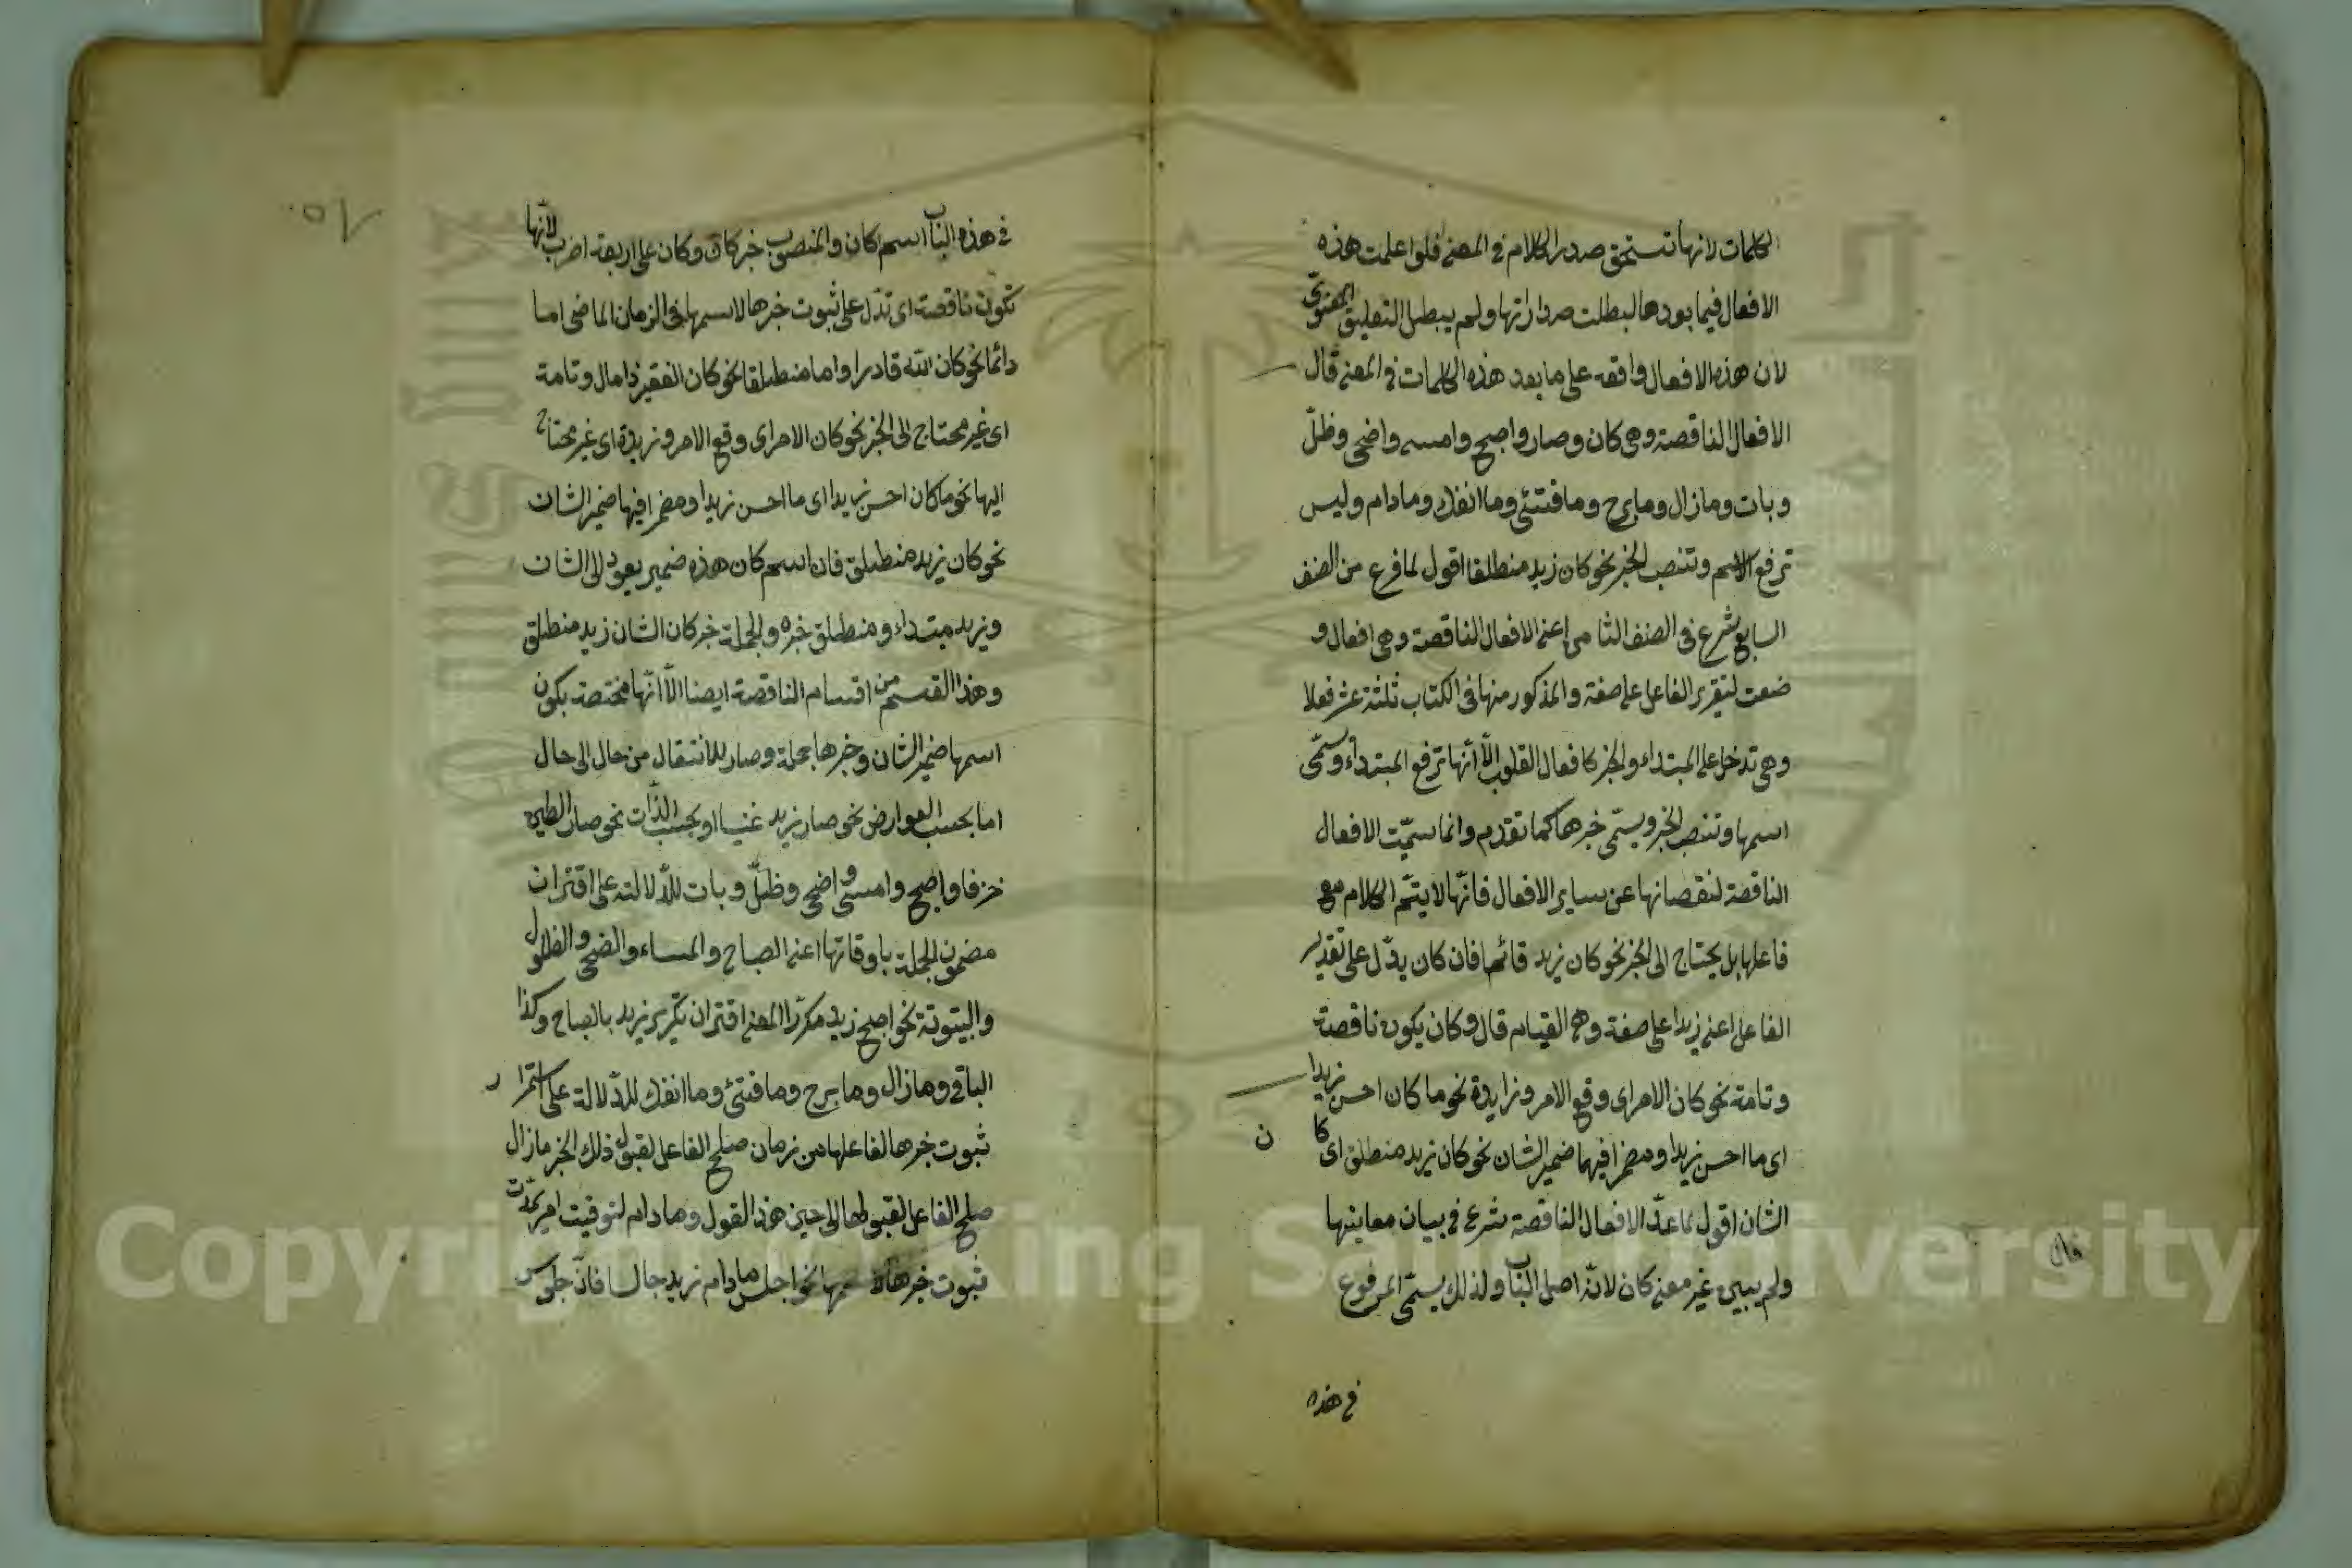 الكلمات لانها تستحق صدر الكلام في المعنى فلو اعلمت هذه
الافعال فيما بعدها لبطلت صدارتها ولم يبطل التعليق المعنوي
لان هذه الافعال واقعة على ما بعد هذه الكلمات في المعنى قال
الافعال الناقصة وهي كان وصار واصبح وامسى واضحى وظلّ
وبات ومازال ومابرح ومافتئ وماانفك ومادام وليس
ترفع الاسم وتنصب الخبر نحو كان زيد منطلقا اقول لما فرغ من الصنف
السابع شرع في الصنف الثامن اعني الافعال الناقصة وهي افعال و
ضعت لتقرير الفاعل على صفة والمذكور منها في الكتاب ثلثة عشر فعلا
وهي تدخل على المبتداء والخبر كافعال القلوب الّا انّها ترفع المبتداء ويسمّى
اسمها وتنصب الخبر ويسمّى خبرها كما تقدم وانما سميّت الافعال
الناقصة لنقصانها عن ساير الافعال فانّها لا يتمّ الكلام مع
فاعلها بل يحتاج الى الخبر نحو كان زيد قائما فان كان يدّل على تقدير
الفاعل اعني زيدا على صفة وهي القيام قال وكان يكون ناقصة
وتامة نحو كان الامر اى وقع الامر وزايدة نحو ما كان احسن زيدا
اى ما احسن زيدا ومضمرا فيها ضمير الشان نحو كان زيد منطلق اى كا ن
الشان اقول لما عدّ الافعال الناقصة شرع في بيان معاينها
ولم يبيى غير معنى كان لانّه اصل الباب ولذلك يسمّى المرفوع
قال
في هذه
٦٥
في هذه الباب اسم كان والمنصوب خبر كان وكان على اربعة اضرب لانّها
تكون ناقصة اى تدّل على ثبوت خبرها لاسمها في الزمان الماضى اما
دائما نحو كان الله قادرا واما منطلقا نحو كان الفقير ذا مال وتامة
اى غير محتاج الى الخبر نحو كان الامر اى وقع الامر وزيدة اى غير محتاج
اليها نحو ما كان احسن زيدا اى ما احسن زيدا ومضمرا فيها ضمير الشان
نحو كان زيد منطلق فان اسم كان هذه ضمير يعود الى الشان
وزيد مبتداء ومنطلق خبره والجملة خبر كان الشان زيد منطلق
وهذا القسم من اقسام الناقصة ايضا الّا انّها مختصة بكون
اسمها ضمير الشان وخبرها جملة وصار للانتقال من حال الى حال
اما بحسب العوارض نحو صار زيد غنيا او بحسب الذّات نحو صار الطين
خزفا واصبح وامسى واضحى وظلّ وبات للدّلالة على اقتران
مضمون الجملة باوقاتها اعني الصباح والمساء والضحى والظلول
والبيتوتة نحو اصبح زيد مكررا المعنى اقتران تكرير زيد بالصباح وكذا
الباقي ومازال ومابرح ومافتئ وماانفك للدّلالة على استمرار
ثبوت خبرها لفاعلها من زمان صلح الفاعل لقبول ذلك الخبر مازال
صلح الفاعل لقبولها الى حين هذا القول ومادام لتوقيت امر بمدّت
ثبوت خبرها نحو اجلس مادام زيد جالسا فانّ جلوس